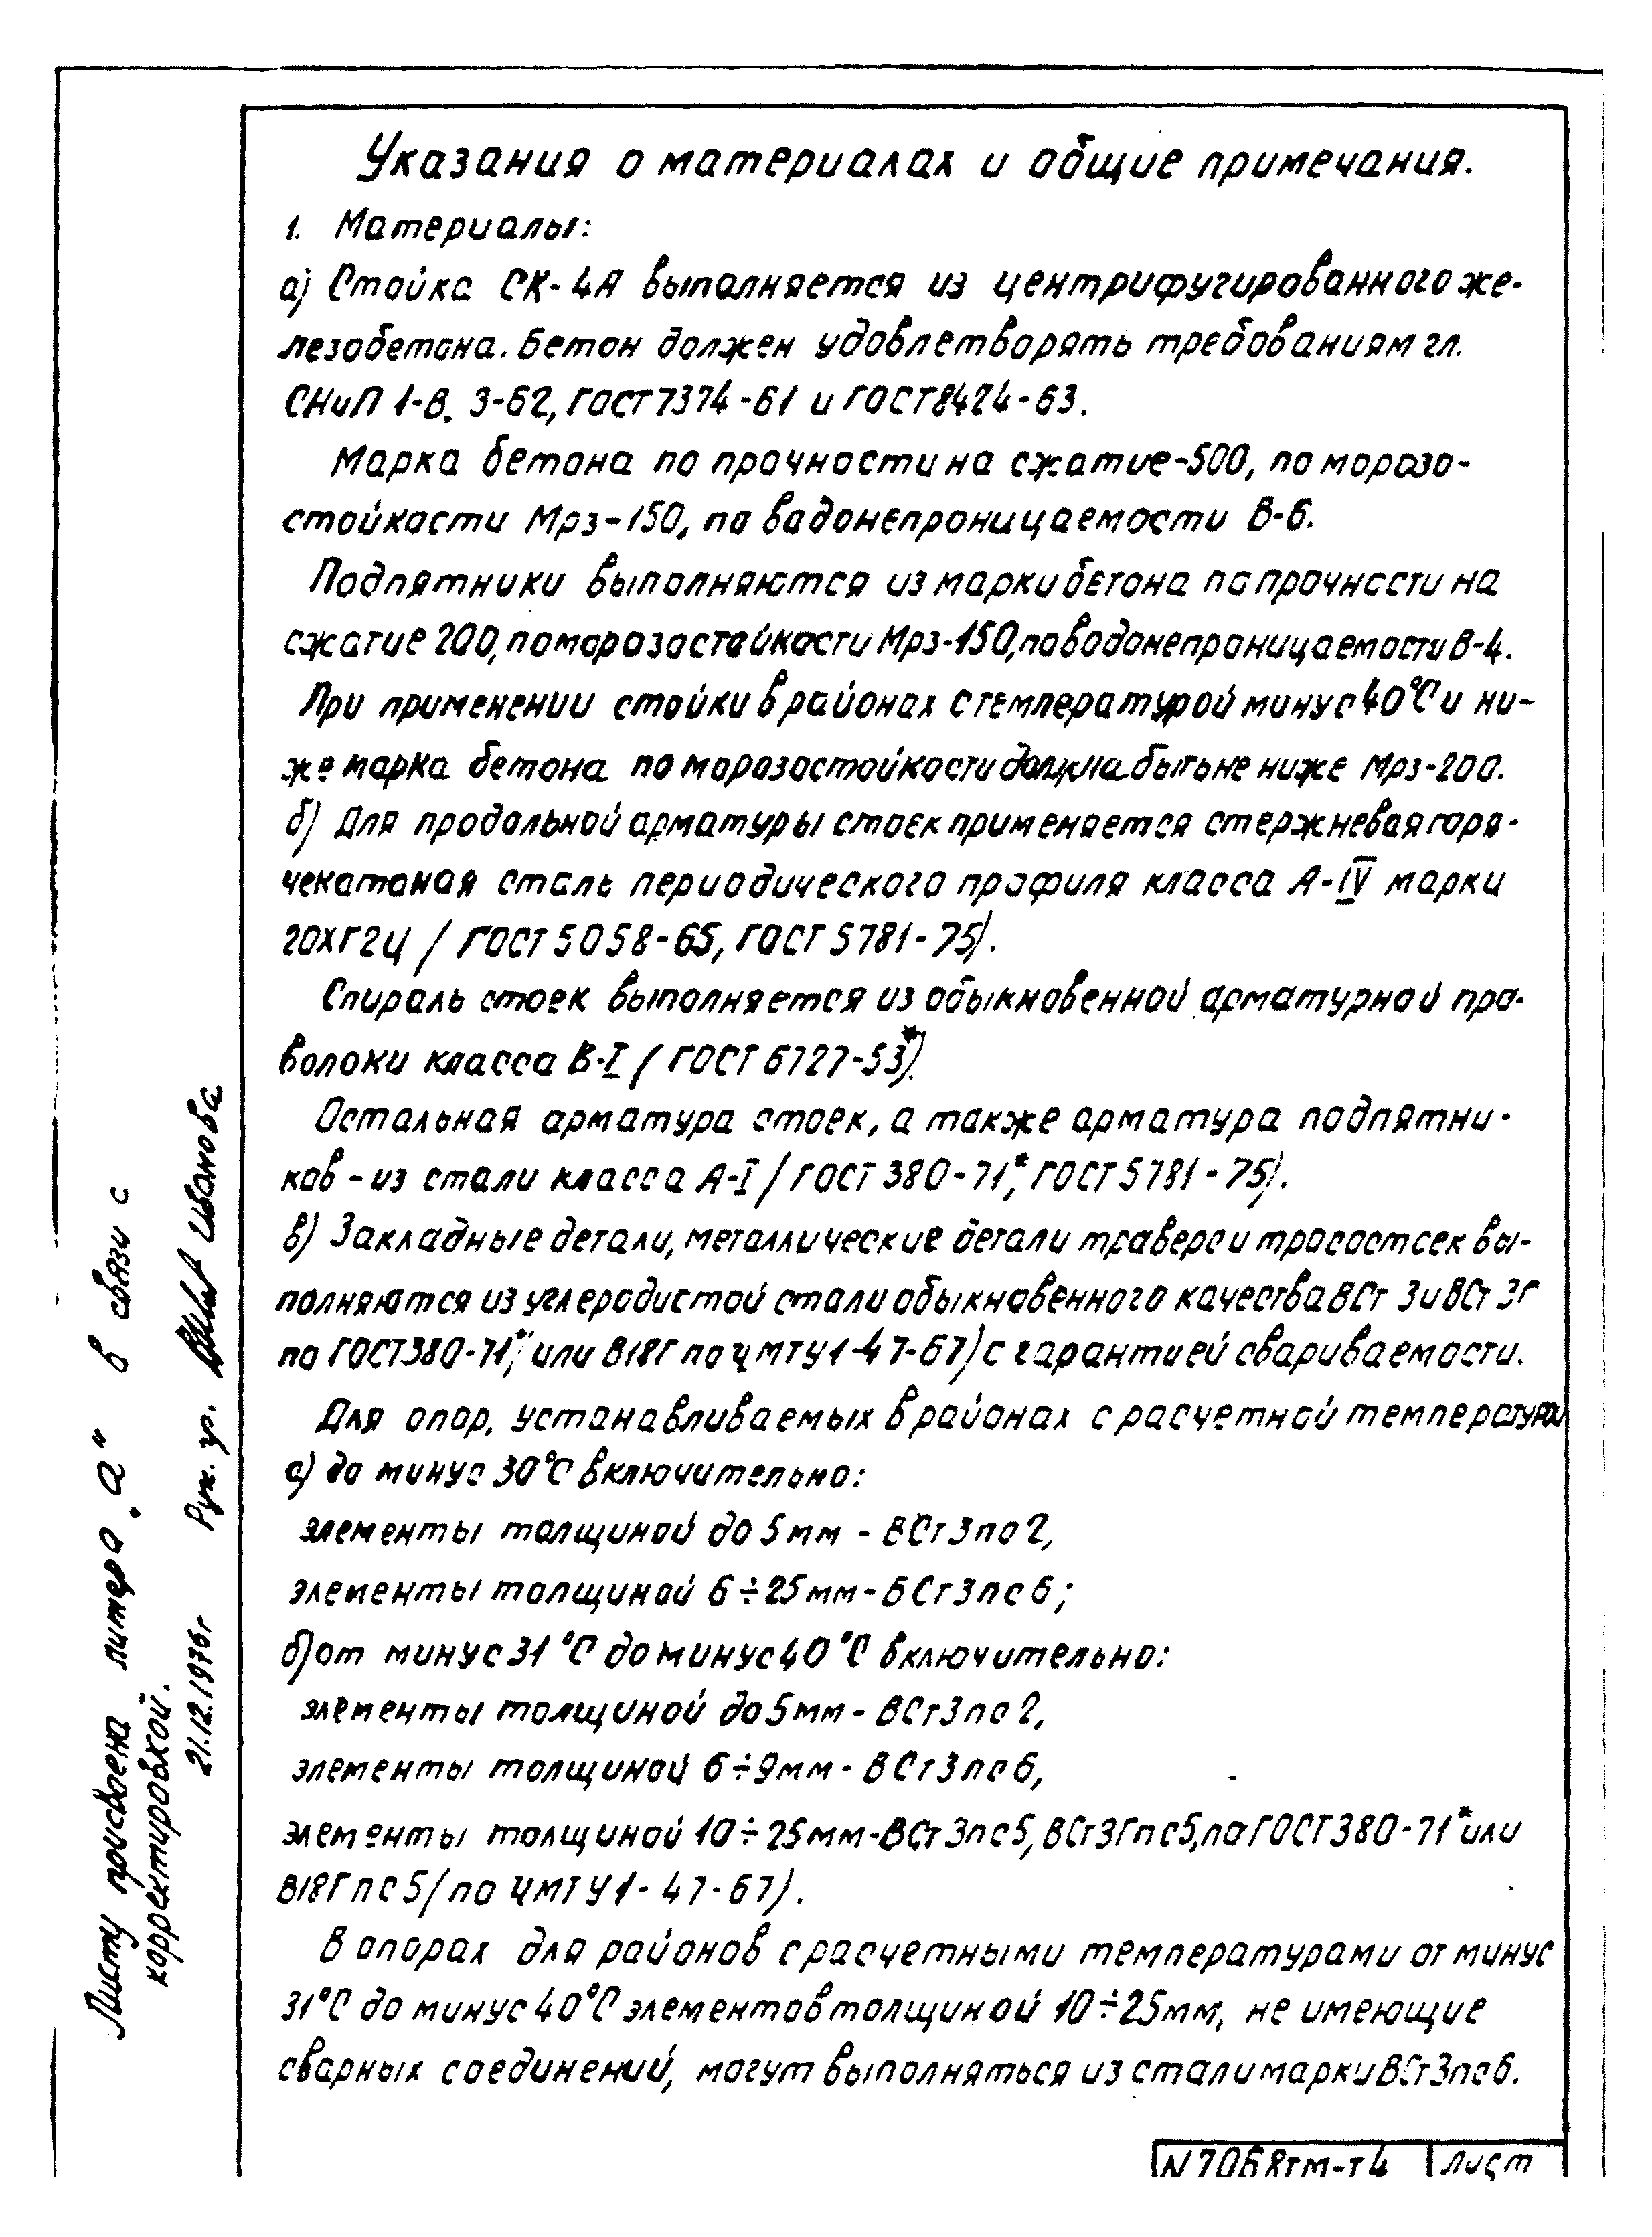 Указания о материалах и общие примечания.
1. Материалы:
а) Стойка СК-4А выполняется из центрифугированного же-
лезобетона. Бетон должен удовлетворять требованиям гл.
СНиП 1-В. 3-62, ГОСТ 7374-61 и ГОСТ 8424-63.
Марка бетона по прочности на сжатие-500, по морозо-
стойкости Мрз-150, по водонепроницаемости В-6.
Подпятники выполняются из марки бетона по прочности на
сжатие 200, по морозостойкости Мрз-150, по водонепроницаемости В-4.
При применении стойки в районах с температурой минус 40°С и ни-
же марка бетона по морозостойкости должна быть не ниже Мрз-200.
б) Для продольной арматуры стоек применяется стержневая горя-
чекатаная сталь периодического профиля класса А-IV марки
20ХГ2Ц /ГОСТ 5058-65, ГОСТ 5781-75).
Спираль стоек выполняется из обыкновенной арматурной про-
волоки класса В-I /ГОСТ 6727-53*)
Остальная арматура стоек, а также арматура подпятни-
ков - из стали класса А-I /ГОСТ 380-71*, ГОСТ 5781-75).
в) Закладные детали, металлические детали траверс и тросостоек вы-
полняются из углеродистой стали обыкновенного качества ВСт 3 и ВСт 3Г
по ГОСТ 380-71*, или В18Г по ЦМТУ 1-47-67) с гарантией свариваемости.
Для опор, устанавливаемых в районах с расчетной температурой
а) до минус 30°С включительно:
элементы толщиной до 5мм - ВСт3по2,
элементы толщиной 6÷25мм - ВСт3пс6;
б) от минус 31°С до минус 40°С включительно:
элементы толщиной до 5мм - ВСт3пс2,
элементы толщиной 6÷9мм - ВСт3пс6,
элементы толщиной 10÷25мм-ВСт3пс5, ВСт3Гпс5, по ГОСТ 380-71* или
В18Гпс5/по ЦМТУ 1-47-67).
В опорах для районов с расчетными температурами от минус
31°С до минус 40°С элементов толщиной 10÷25мм, не имеющие
сварных соединений, могут выполняться из стали марки ВСт3пс6.
N7068тм-т4 Лист
Листу присвоена литера „а" в связи с
корректировкой.
21.12.1976г Рук. гр. Иванова